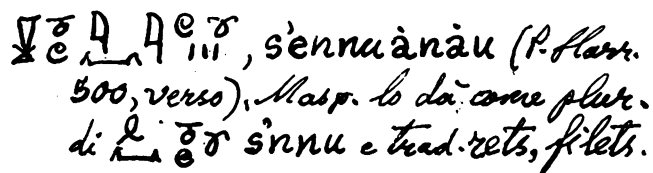 , s'ennuànàu (P. Harr.
500, verso), Masp. lo dà come plur.
di s'nnu e trad. rets, filets.